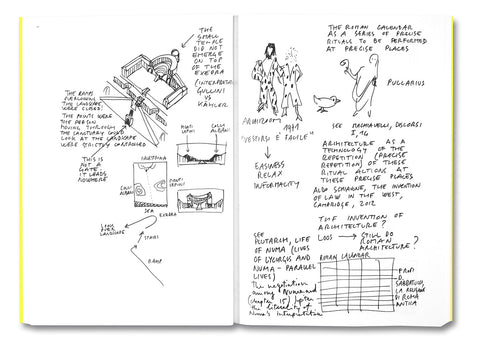 THE
SMALL
TEMPLE
DID NOT
EMERGE
ON TOP
OF THE
EXEDRA
(INTERPRETATION
GULLINI
VS
KÄHLER
THE RAMPS
OVERLOOKING
THE LANDSCAPE
WERE CLOSED:
THE POINTS WHERE
THE PERSON
MOVING THROUGH
THE SANCTUARY COULD
LOOK AT THE LANDSCAPE
WERE STRICTLY CONTROLLED
MONTI
LEPINI
COLLI
ALBANI
THIS IS
NOT A
GATE:
IT LEADS
NOWHERE
PRAENESTINA
COLLI
ALBANI
MONTI
LEPINI
SEA
EXEDRA
LOOK
OVER
LANDSCAPE
STAIRS
RAMP
THE ROMAN CALENDAR
AS A SERIES OF PRECISE
RITUALS TO BE PERFORMED
AT PRECISE PLACES
PULLARIUS
ARCHIZOOM
1971
"VESTIRSI È FACILE"
SEE MACHIAVELLI, DISCORSI
I, 14
EASINESS
RELAX
INFORMALITY
ARCHITECTURE AS A
TECHNOLOGY OF THE
REPETITION (PRECISE
REPETITION) OF THESE
RITUAL ACTIONS AT
THESE PRECISE PLACES
ALDO SCHIAVONE, THE INVENTION
OF LAW IN THE WEST,
CAMBRIDGE, 2012
THE INVENTION OF
ARCHITECTURE?
SEE
PLUTARCH, LIFE
OF NUMA (LIVES
OF LYCURGUS AND
NUMA - PARALLEL
LIVES)
The negotiation
among Numa and
(chapter 15) Jupiter
the literality of
Numa's interpretation
LOOS → STILL DO
ROMAN
ARCHITECTURE?
ROMAN CALENDAR
→ PROF.
D.
SABBATUCCI,
LA RELIGIONE
DI ROMA
ANTICA